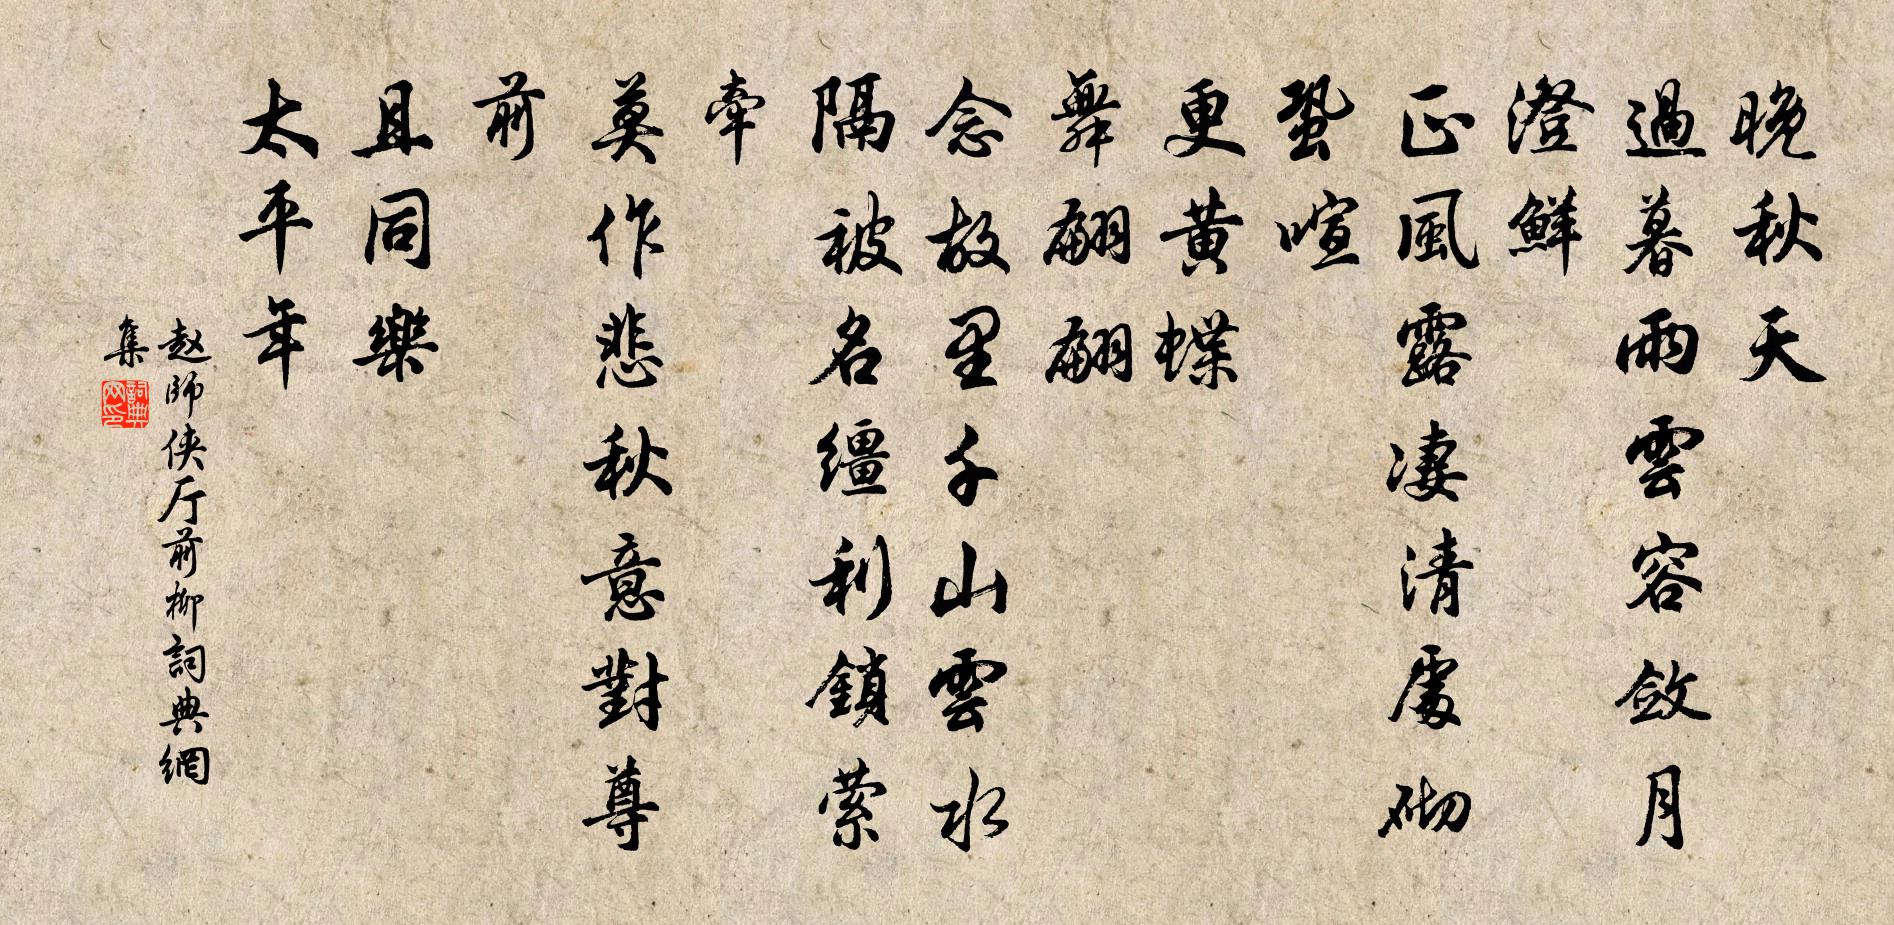 晚秋天
過暮雨雲容斂月
澄鮮
正風露凄清處砌
蛩喧
更黃蝶
舞翩翩
念故里千山雲水
隔被名缰利鎖縈
牽
莫作悲秋意對尊
前
且同樂
太平年
赵師侠厅前柳詞典網
集
詞典網印